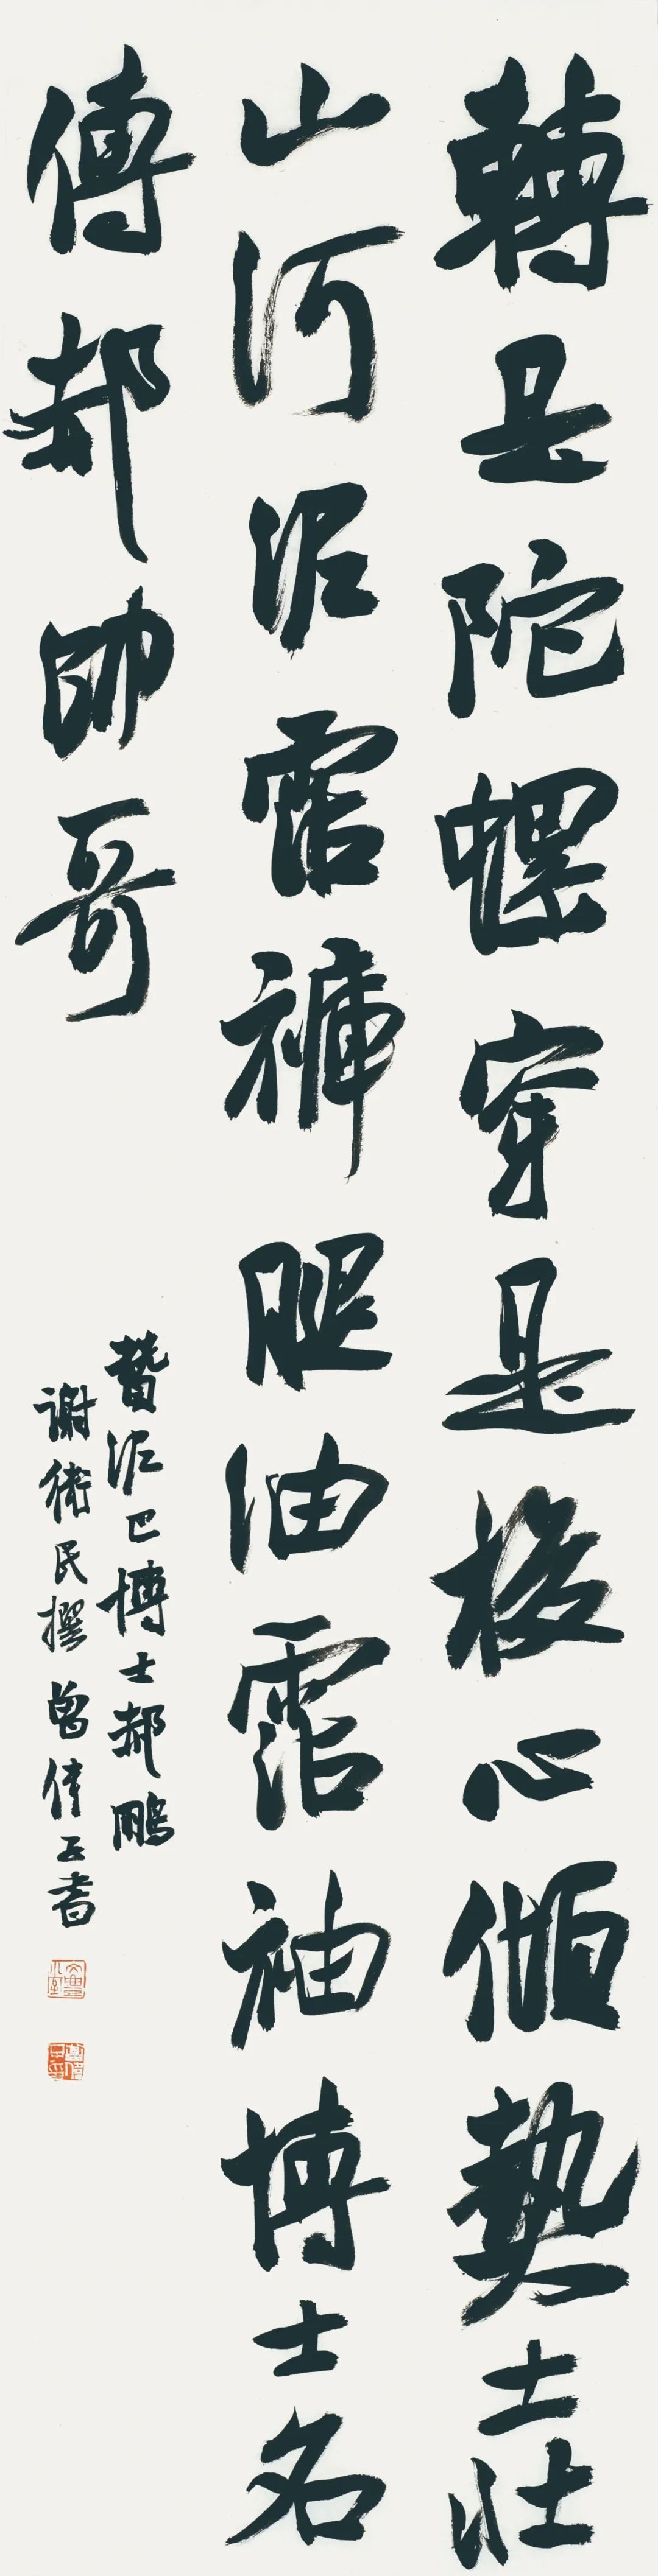 轉是陀螺穿是梭心傾熱土壯
山河泥霑褲腿油霑袖博士名
傳郝帥哥
贊泥巴博士郝鵬
謝衛民撰曾倩玉書